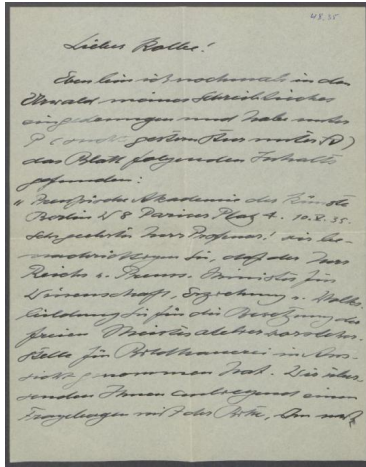 48.35
Lieber Kolbe!
Eben bin ich nochmals in den
Urwald meines Schreibtisches
eingedrungen und habe unter
P ( gestern nur unter K)
das Blatt folgenden Inhalts
gefunden:
"Preußische Akademie der Künste
Berlin W 8 Pariser Platz 4. 10.8.35.
Sehr geehrter Herr Professor! wir be-
nachrichtigen Sie, daß der Herr
Reichs u. Preuss. Minister für
Wissenschaft, Erziehung u. Volks-
bildung Sie für die Besetzung der
freien Meisteratelier vorsteher-
stelle für Bildhauerei in Aus-
sicht genommen hat. Wir über-
senden Ihnen anliegend einen
Fragebogen mit der Bitte, ihn nach